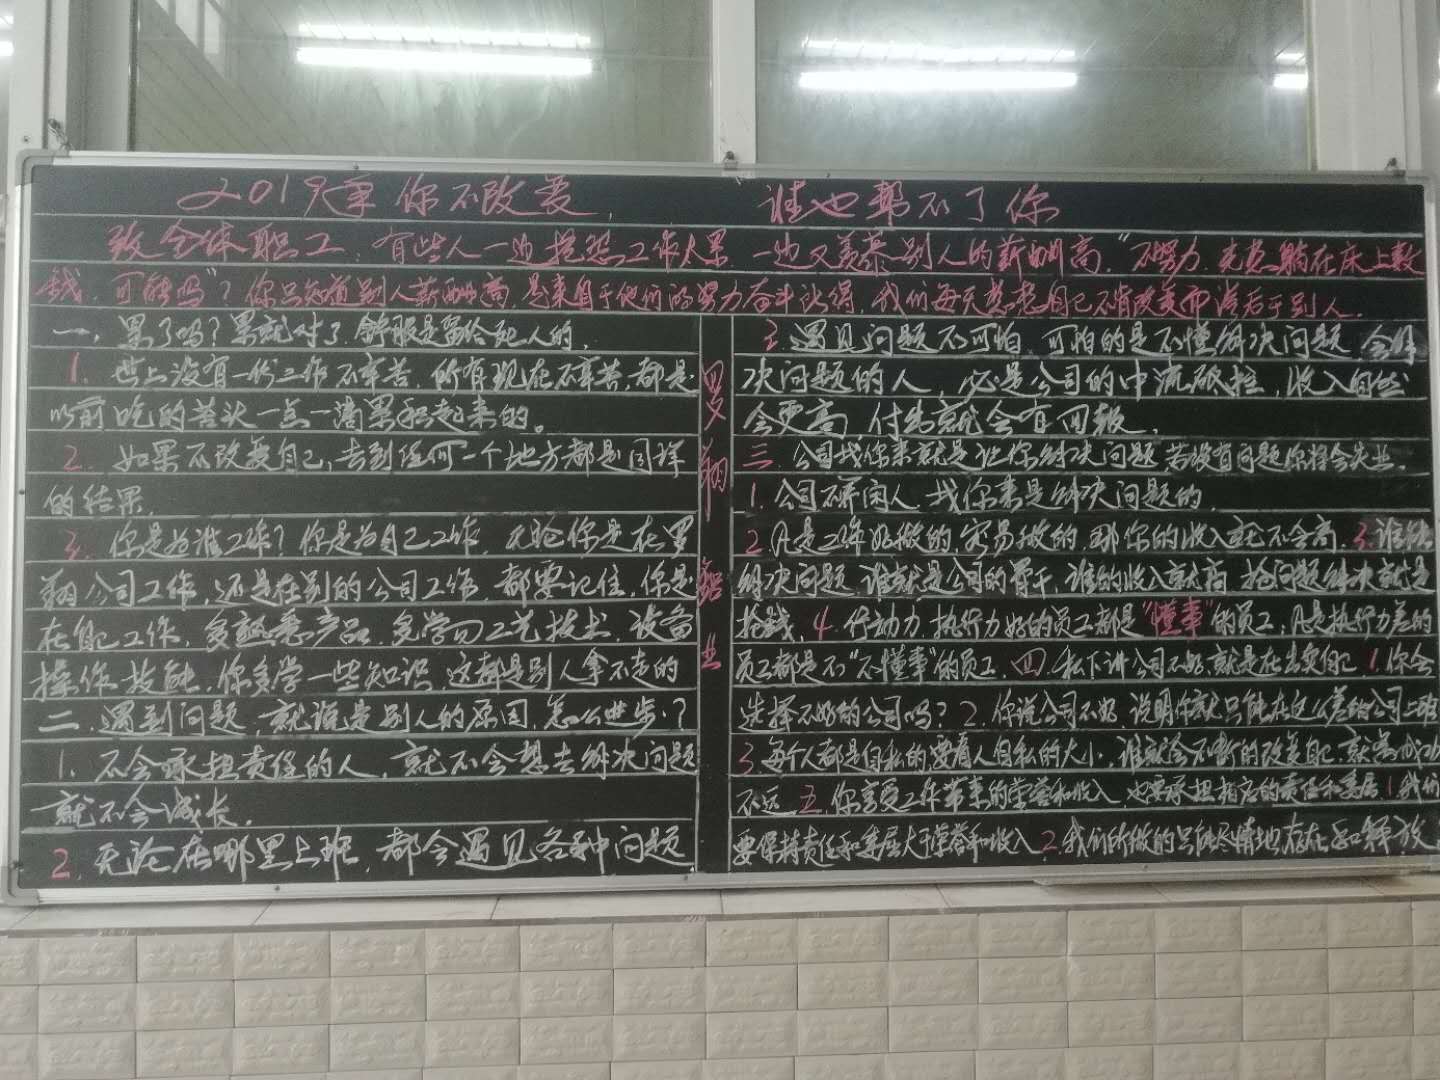 2019年 你不改变, 谁也帮不了你
致全体职工:有些人一边抱怨工作太累 一边又羡慕别人的薪酬高,“不努力,光想躺在床上数
钱,可能吗”?你只知道别人薪酬高,是来自于他们的努力奋斗所得,我们每天想着自己不肯改变而落后于别人.
一,累了吗?累就对了,舒服是留给死人的,
1.世上没有一份工作不辛苦,所有现在不辛苦,都是
以前吃的苦头一点一滴累积起来的。
2.如果不改变自己,去到任何一个地方都是同样
的结果.
3.你是为谁工作?你是为自己工作,无论你是在罗
翔公司工作,还是在别的公司工作,都要记住,你是
在自己工作,多熟悉产品,多学习工艺技术,设备
操作技能,你多学一些知识,这都是别人拿不走的
二.遇到问题,就说是别人的原因,怎么进步?
1.不会承担责任的人,就不会想去解决问题
就不会成长.
2.无论在哪里上班,都会遇见各种问题
罗翔铝业
3.遇见问题不可怕,可怕的是不懂解决问题,会解
决问题的人,必是公司的中流砥柱,收入自然
会更高,付出就会有回报,
三.公司找你来就是让你解决问题,若没有问题你将会失业.
1.公司不养闲人,找你来是解决问题的,
2.凡是工作好做的,容易做的,那你的收入就不会高,3.谁能
解决问题,谁就是公司的骨干,谁的收入就高,抢问题解决就是
抢钱,4.行动力,执行力好的员工都是“懂事”的员工,凡是执行力差的
员工都是不“不懂事”的员工.四.私下讲公司不好,就是在出卖自己 1.你会
选择不好的公司吗?2.你说公司不好,说明你就只能在这么差的公司上班
3.每个人都是自私的,要看人自私的大小,谁就会不断的改变自己,就离成功
不远 五.你享受工作带来的荣誉和收入,也要承担相应的责任和委屈 1.我们
要保持责任和委屈大于荣誉和收入 2.我们所做的只能尽情地存在和释放